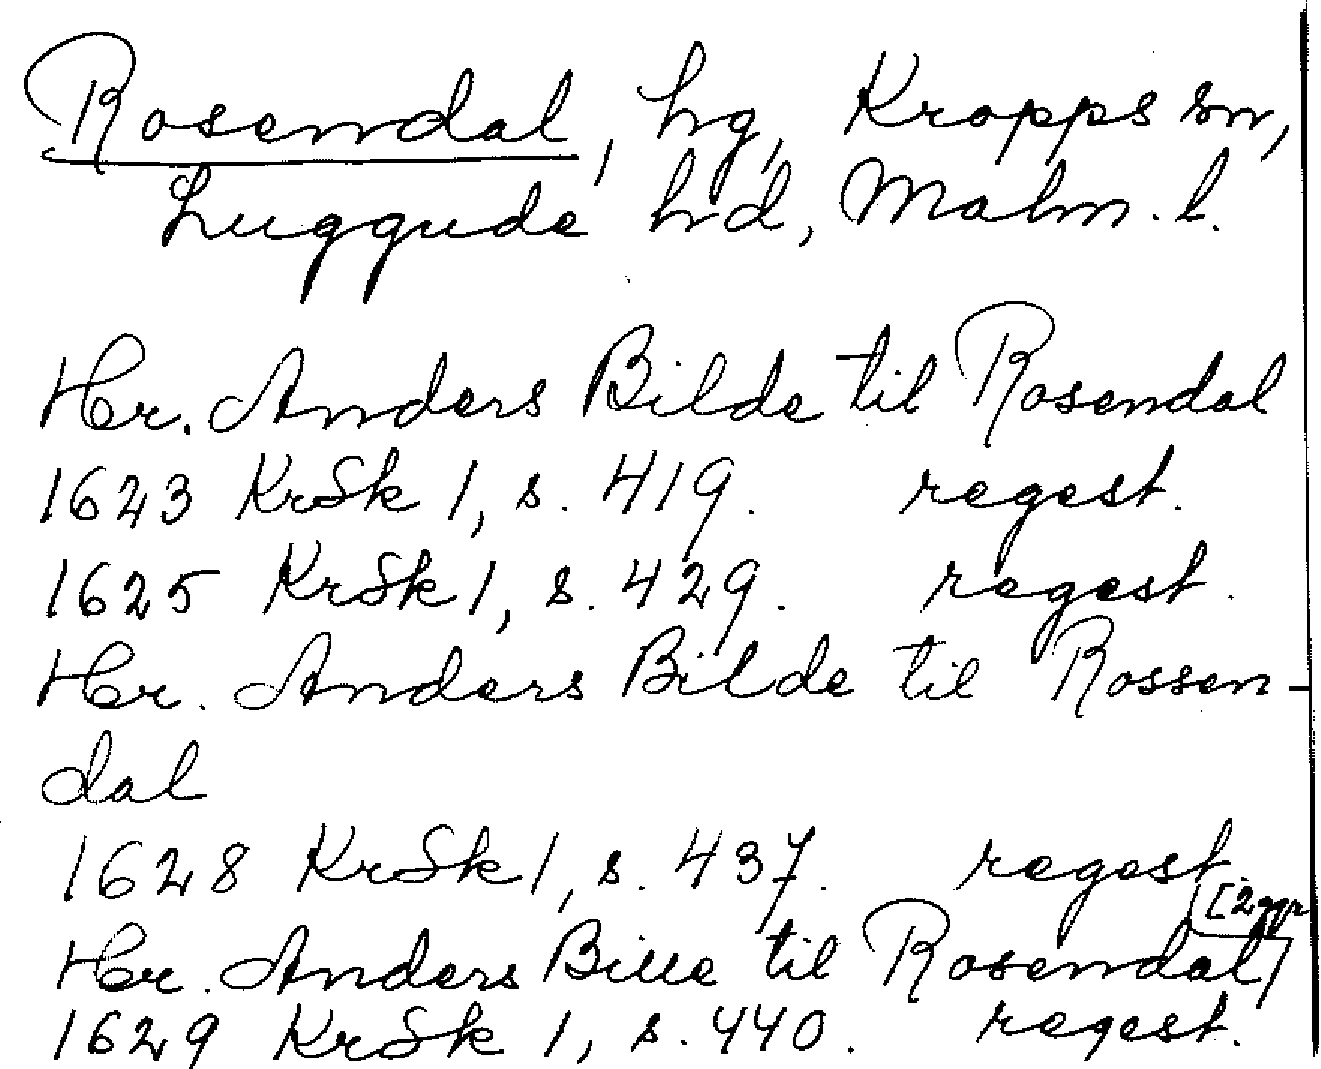 Rosendal, hg, Kropps sn,
Luggude hd, Malm. l.
Hr. Anders Bilde til Rosendal
1623 KrSk 1, s. 419. regest.
1625 KrSk 1, s. 429. regest.
Hr. Anders Bilde til Rossen-
dal
1628 KrSk 1, s. 437. regest.
[2 ggr
Hr. Anders Bille til Rosendal,
1629 KrSk 1, s. 440. regest.